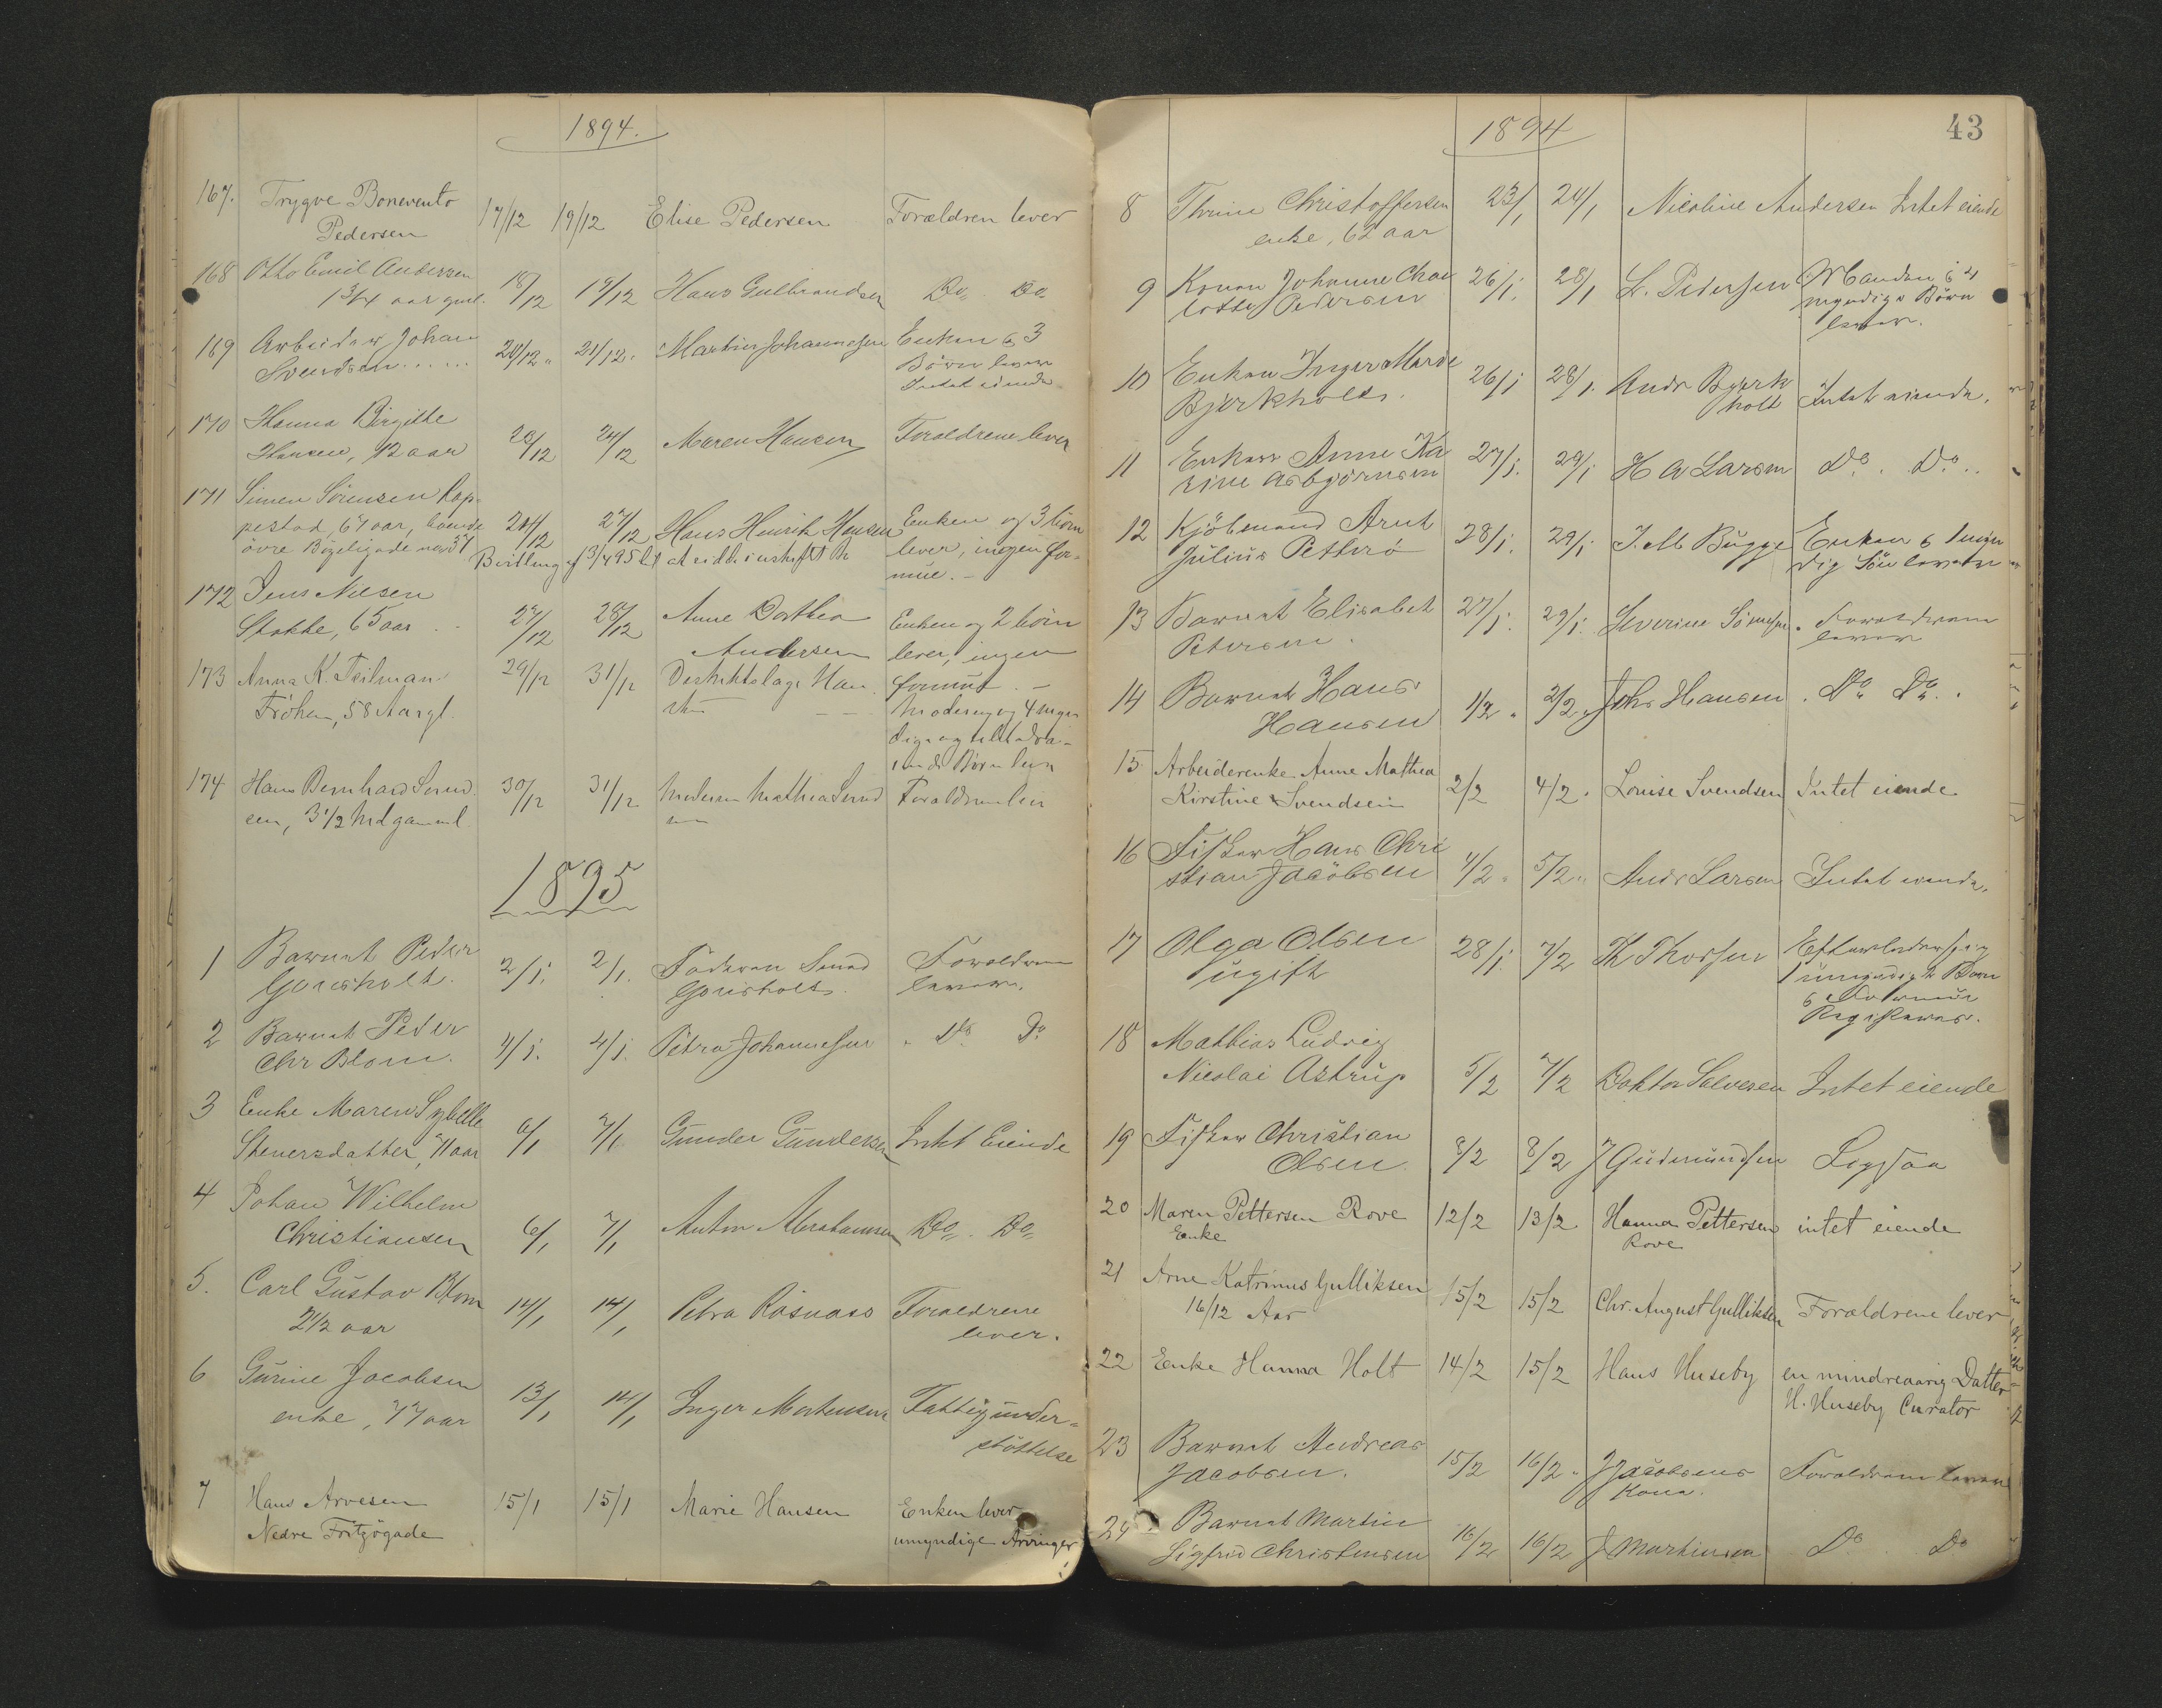 1894.
167. Trygve Bonevento 17/12 19/12 Elise Pedersen Forældren lever
Pedersen
168 Otto Emil Andersen 18/12 19/12 Hans Gulbrandsen Do Do
1 3/4 aar gml.
169 Arbeider Johan 20/12 21/12 Martin Johannesen Enken & 3
Svendsen...... Börn lever
Intet eiende
170 Hanna Birgitte 23/12 24/12 Maren Hansen Forældrene lever
Hansen, 12 aar
171 Simen Sörensen Rop-
pestad, 67 aar, boende 24/12 27/12 Hans Henrik Hansen Enken og 3 börn
övre Bögeligade no 37 lever, ingen for-
mue. -
172 Jens Nilsen 27/12 28/12 Anne Dorthea Enken og 2 börn
Stokke, 65 aar .. Andersen lever, ingen
173 Anna K. Teilman 29/12 31/12 formue. -
Fröken, 58 Aar gl. Moderen og 4 myn
dige og
Börn lever
174 Hans Bernhard Svend 30/12 31/12 Moderen Mathea Svend Forældrene lever
sen, 3 1/2 Md gammel sen
1895
1 Barnet Peder 2/1. 2/1. Faderen Forældrene
Gonsholt. Gonsholt. lever.
2 Barnet Peder 4/1. 4/1. Petra Johannesen Do Do
Chr Blom.
3 Enke Maren Sybille 6/1 7/1 Gunder Gundersen Intet Eiende
Stenersdatter, 71 aar
4 Johan Wilhelm
Christiansen 6/1 7/1 Anton Abrahamsen Do. Do
5. Carl Gustav Blom 14/1 14/1 Petra Rasnass Forældrene
2 1/2 aar lever.
6 Gurine Jacobsen 13/1 14/1 Inger Mortensen Fattigunder-
enke, 77 aar støttelse
7 Hans Arvesen 15/1 15/1 Marie Hansen Enken lever
Nedre Fritzögade umyndige Arvinger
1894
43
8 Thrine Christoffersen 23/1 24/1 Nicoline Andersen Intet eiende
enke, 62 aar
9 Konen Johanne Char 26/1. 28/1 L. Pedersen Manden & 4
lotte Pedersen myndige Börn
lever.
10 Enken Inger Marie 26/1 28/1. Andr Bjerk Intet eiende.
Bjerkholt. holt
11 Enken Anne Ka 27/1. 29/1 H A Larsen Do. Do..
rine Asbjörnsen
12 Kjöbmand Arnt 28/1. 29/1 J. M Bugge Enken & 1 myn
Julius Petterö dig Sön lever
13 Barnet Elisabet 27/1. 29/1. Severine Sörensen. Forældrene
Petersen. lever
14 Barnet Hans 1/2 2/2 Johs Hansen. Do Do.
Hansen
15 Arbeiderenke Anne Mathea 2/2 4/2. Louise Svendsen Intet eiende
Kirstine Svendsen
16 Fisker Hans Chri 4/2 5/2 Andr Larsen Intet eiende.
stian Jacobsen
17 Olga Olsen 28/1. 7/2 Th Thorsen Efterlader sig
ugift 1 umyndigt Barn
& Formuen
Registeres.
18 Mathias Ludvig
Nicolai Astrup 5/2 7/2 Doktor Salvesen Intet eiende
19 Fisker Christian 8/2 8/2 J Gudmundsen Ligesaa
Olsen
20 Maren Pettersen Rove 12/2 13/2 Hanna Pettersen intet eiende
Enke Rove
21 Arne Katrinus Gulliksen 15/2 15/2 Chr. August Gulliksen Forældrene lever
16/12 Aar
22 Enke Hanna Holt 14/2 15/2 Hans Huseby en mindreaarig Datter
H. Huseby Curator
23 Barnet Andreas 15/2 16/2. J Jacobsens Forældrene lever
Jacobsen. Kone.
24 Barnet Martin 16/2 16/2 J Martinsen Do Do
Sigfrid Christensen